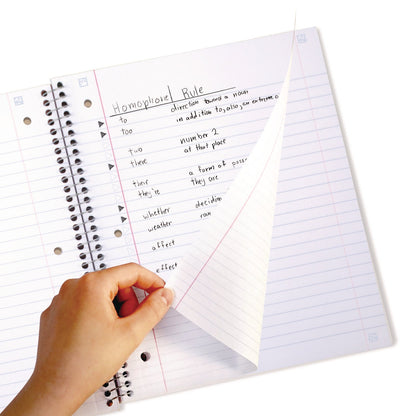 Homophone Rule
to direction toward a noun
too in addition to, also, an extreme
two number 2
there at that place
their a form of
they're they are
whether decision
weather rain
affect
effect